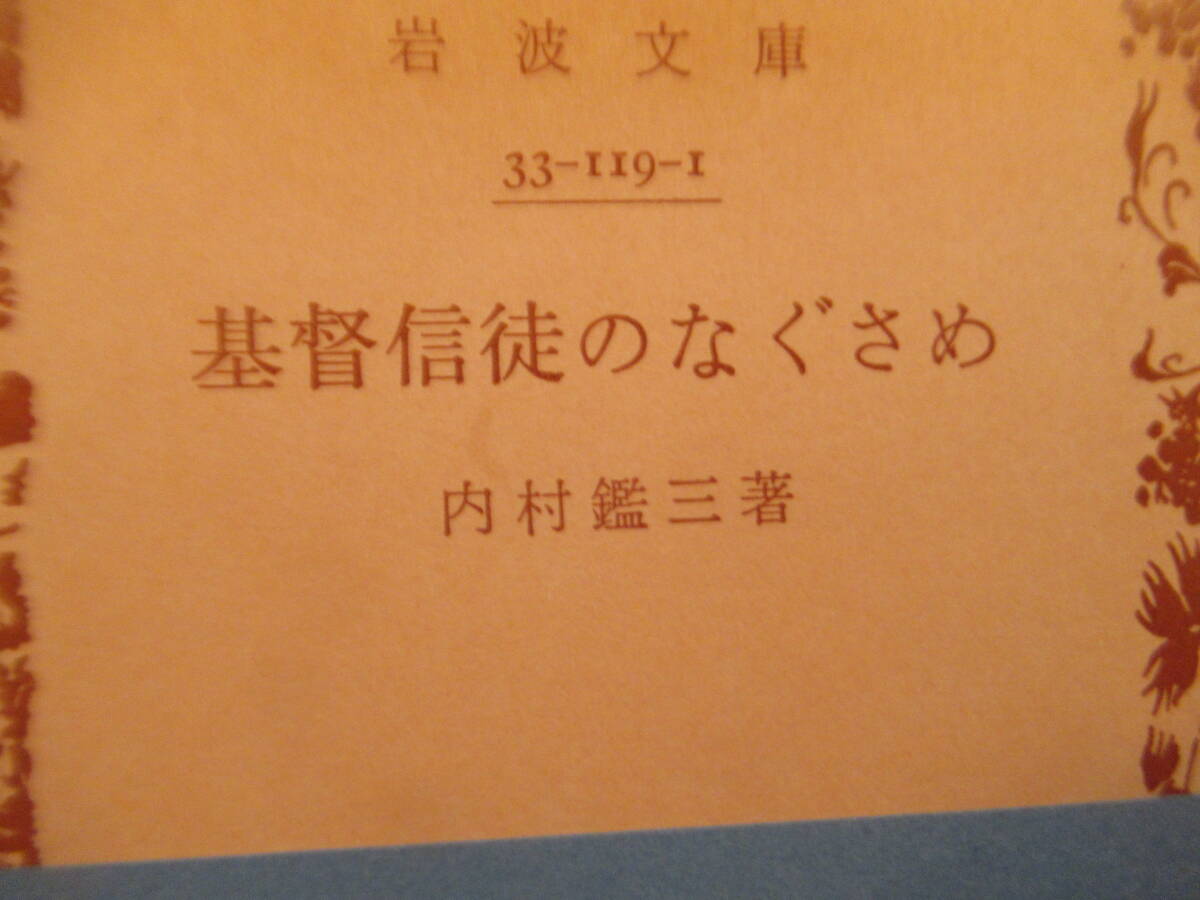 岩波文庫
33-119-1
基督信徒のなぐさめ
内村鑑三著